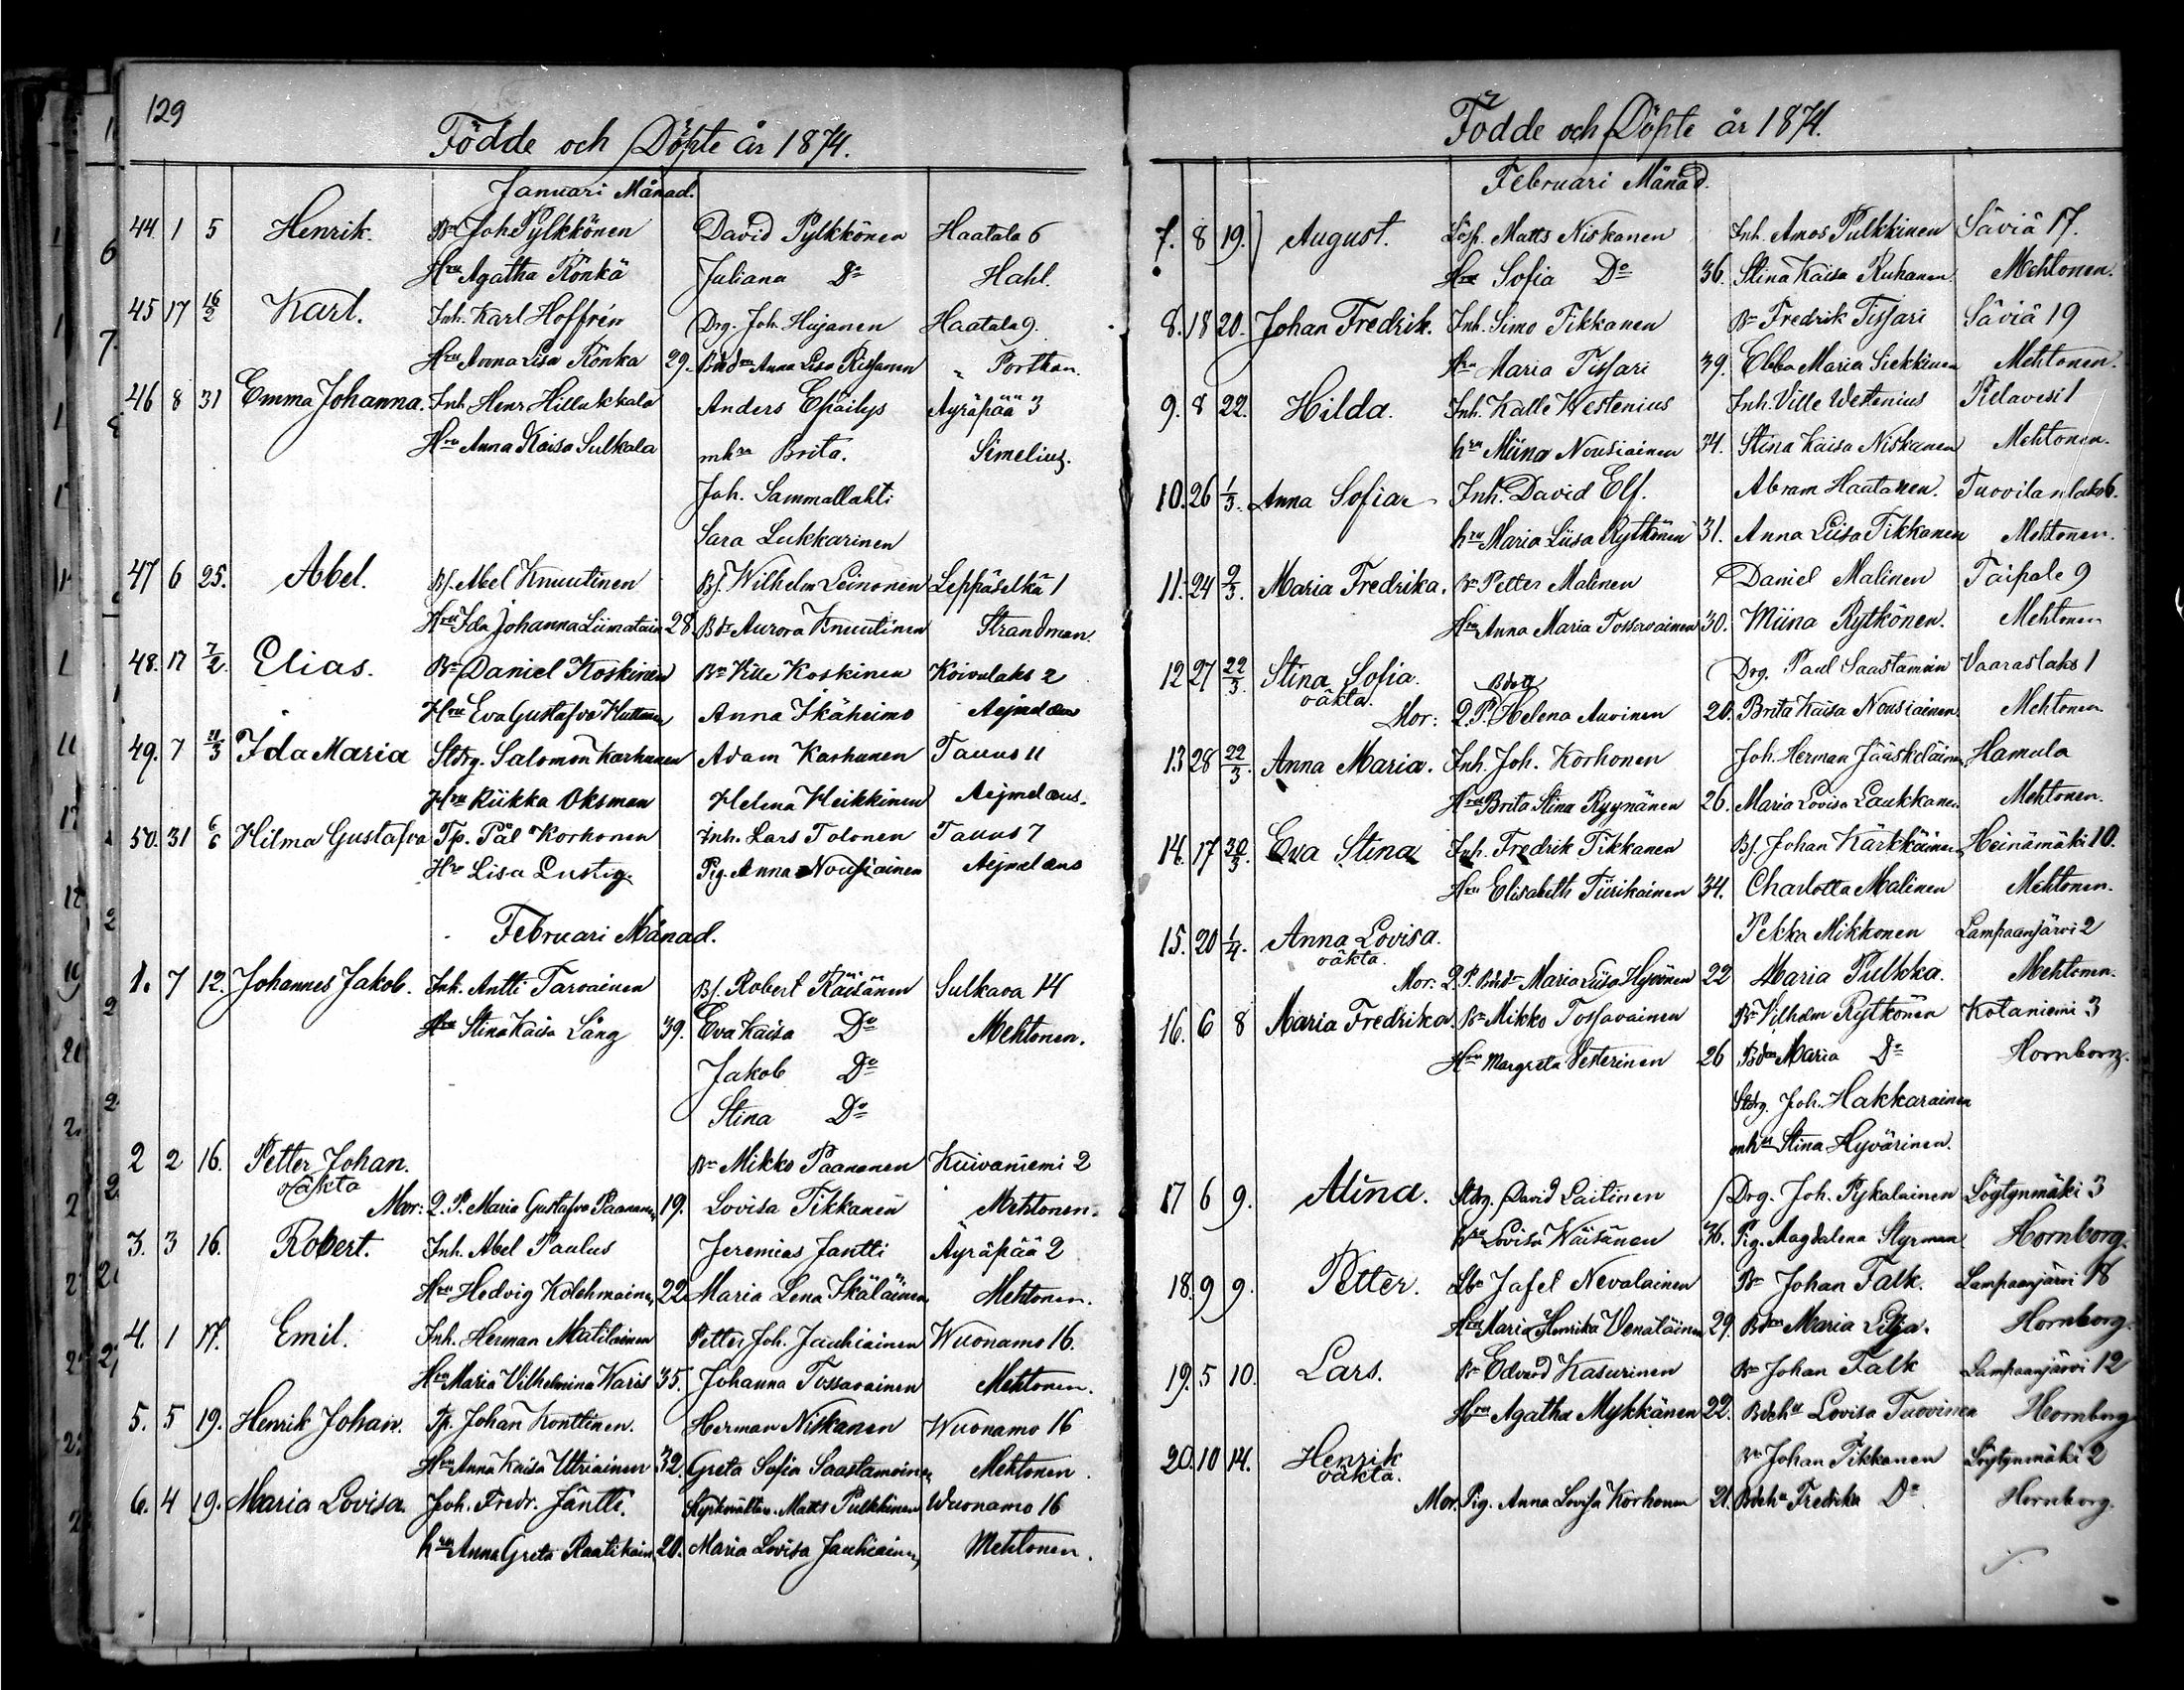 129
Födde och Döpte år 1874.
Januari Månad.
44 1 5 Henrik. Bn Joh Pylkkönen David Pylkkönen Haatala 6
Hru Agatha Rönkä Juliana Do Hahl.
45 17 16/2 Karl. Inh. Karl Hoffrén Drg. Joh. Hujanen Haatala 9.
Hru Anna Lisa Rönka 29. Anna Lisa Rissanen " Porthan.
46 8 31 Emma Johanna. Inh. Henr Hillukkala Anders Epäilys Äyräpää 3
Hru Anna Kaisa Sulkala mhru Brita. Simelius.
Joh. Sammallahti
Sara Lukkarinen
47 6 25. Abel. Bs. Abel Knuutinen Bs. Wilhelm Leinonen Leppäselkä 1
Hru Ida Johanna Liimatain 28 Bdr Aurora Knuutinen Strandman
48. 17 7/2. Elias. Bn Daniel Koskinen Bn Ville Koskinen Koivulaks 2
Hru Eva Gustafva Huttunen Anna Ikäheimo Aejmelæus
49. 7 11/3 Ida Maria Stdrg. Salomon Karhunen Adam Karhunen Tauus 11
Hru Riikka Oksman Helena Heikkinen Aejmelæus.
50. 31 6/6 Hilma Gustafva Tp. Pål Korhonen Inh. Lars Tolonen Tauus 7
Hru Lisa Lustig. Pig. Anna Nousiainen Aejmelæus
Februari Månad.
1. 7 12. Johannes Jakob. Inh. Antti Tarvainen Bs. Robert Räisänen Sulkava 14
Hru Stina Kaisa Lång 39. Eva Kaisa Do Mehtonen.
Jakob Do
Stina Do
2 2 16. Petter Johan. Bn Mikko Paananen Kuivaniemi 2
oäkta
Mor: Q. P. Maria Gustafva Paananen 19. Lovisa Tikkanen Mehtonen.
3. 3 16. Robert. Inh. Abel Paulus Jeremias Jantti Äyräpää 2
Hru Hedvig Kolehmainen 22 Maria Lena Ikäläinen Mehtonen.
4. 1 17. Emil. Inh. Herman Matilainen Petter Joh. Jauhiainen Wuonamo 16.
Hru Maria Vilhelmina Waris 35. Johanna Tossavainen Mehtonen.
5. 5 19. Henrik Johan. Tp. Johan Konttinen. Herman Niskanen Wuonamo 16
Hru Anna Kaisa Utriainen 32. Greta Sofia Saastamoinen Mehtonen.
6. 4 19. Maria Lovisa. Joh. Fredr. Jäntti. Matts Pulkkinen Wuonamo 16
hru Anna Greta Raatikain 20. Maria Lovisa Jauhiainen Mehtonen.
Födde och Döpte år 1874.
Februari Månad.
7. 8 19. August. Lösp. Matts Niskanen Inh. Amos Pulkkinen Säviä 17.
Hru Sofia Do 36. Stina Kaisa Ruhanen. Mehtonen.
8. 18 20. Johan Fredrik. Inh. Simo Tikkanen Bn Fredrik Tissari Säviä 19
Hru Maria Tissari 39. Ebba Maria Siekkinen Mehtonen.
9. 8 22. Hilda. Inh. Kalle Westenius Inh. Ville Westenius Pielavesi 1
hru Miina Nousiainen 34. Stina Kaisa Niskanen Mehtonen.
10. 26 1/3. Anna Sofia Inh. David Elf. Abram Haatanen. Tuovilanlaks 6.
hru Maria Liisa Rytkönen 31. Anna Liisa Tikkanen Mehtonen.
11. 24 9/3. Maria Fredrika. Bn Petter Malinen Daniel Malinen Taipale 9
Hru Anna Maria Tossavainen 30. Miina Rytkönen. Mehtonen
12 27 22/3. Stina Sofia. Drg. Paul Saastamoin Vaaraslaks 1
oäkta. Bdott
Mor: Q. P. Helena Auvinen 20. Brita Kaisa Nousiainen Mehtonen
13 28 22/3. Anna Maria. Inh. Joh. Korhonen Joh. Herman Jääskeläinen Hamula
Hru Brita Stina Ryynänen 26. Maria Lovisa Laukkanen Mehtonen.
14. 17 30/3. Eva Stina Inh. Fredrik Tikkanen Bs. Johan Kärkkäinen Heinämäki 10.
Hru Elisabeth Tiirikainen 34. Charlotta Malinen Mehtonen.
15. 20 1/4. Anna Lovisa. Pekka Mikkonen Lampaanjärvi 2
oäkta.
Mor: Q. P. Maria Liisa Hyvönen 22 Maria Pulkka. Mehtonen.
16. 6 8 Maria Fredrika. Bn Mikko Tossavainen Bn Vilhelm Rytkönen Kotaniemi 3
Hru Margreta Vesterinen 26 Maria Do Hornborg.
Stdrg. Joh. Hakkarainen
mhu Stina Hyvärinen.
17 6 9. Alina. Stdrg. David Laitinen Drg. Joh. Pykalainen Löytynmäki 3
hru Lovisa Wäisänen 36. Pig. Magdalena Styrman Hornborg.
18. 9 9. Petter. Jafel Nevalainen Bn Johan Falk. Lampaanjärvi 18
Hru Maria Henrika Venäläinen 29. Maria Lilja. Hornborg.
19. 5 10. Lars. Bn Edvard Kasurinen Bn Johan Falk Lampaanjärvi 12
Hru Agatha Mykkänen 22. Lovisa Tuovinen Hornborg
20. 10 14. Henrik Bn Johan Tikkanen Löytynmäki 2
oäkta.
Mor. Pig. Anna Lovisa Korhonen 21. Fredrika Do. Hornborg.